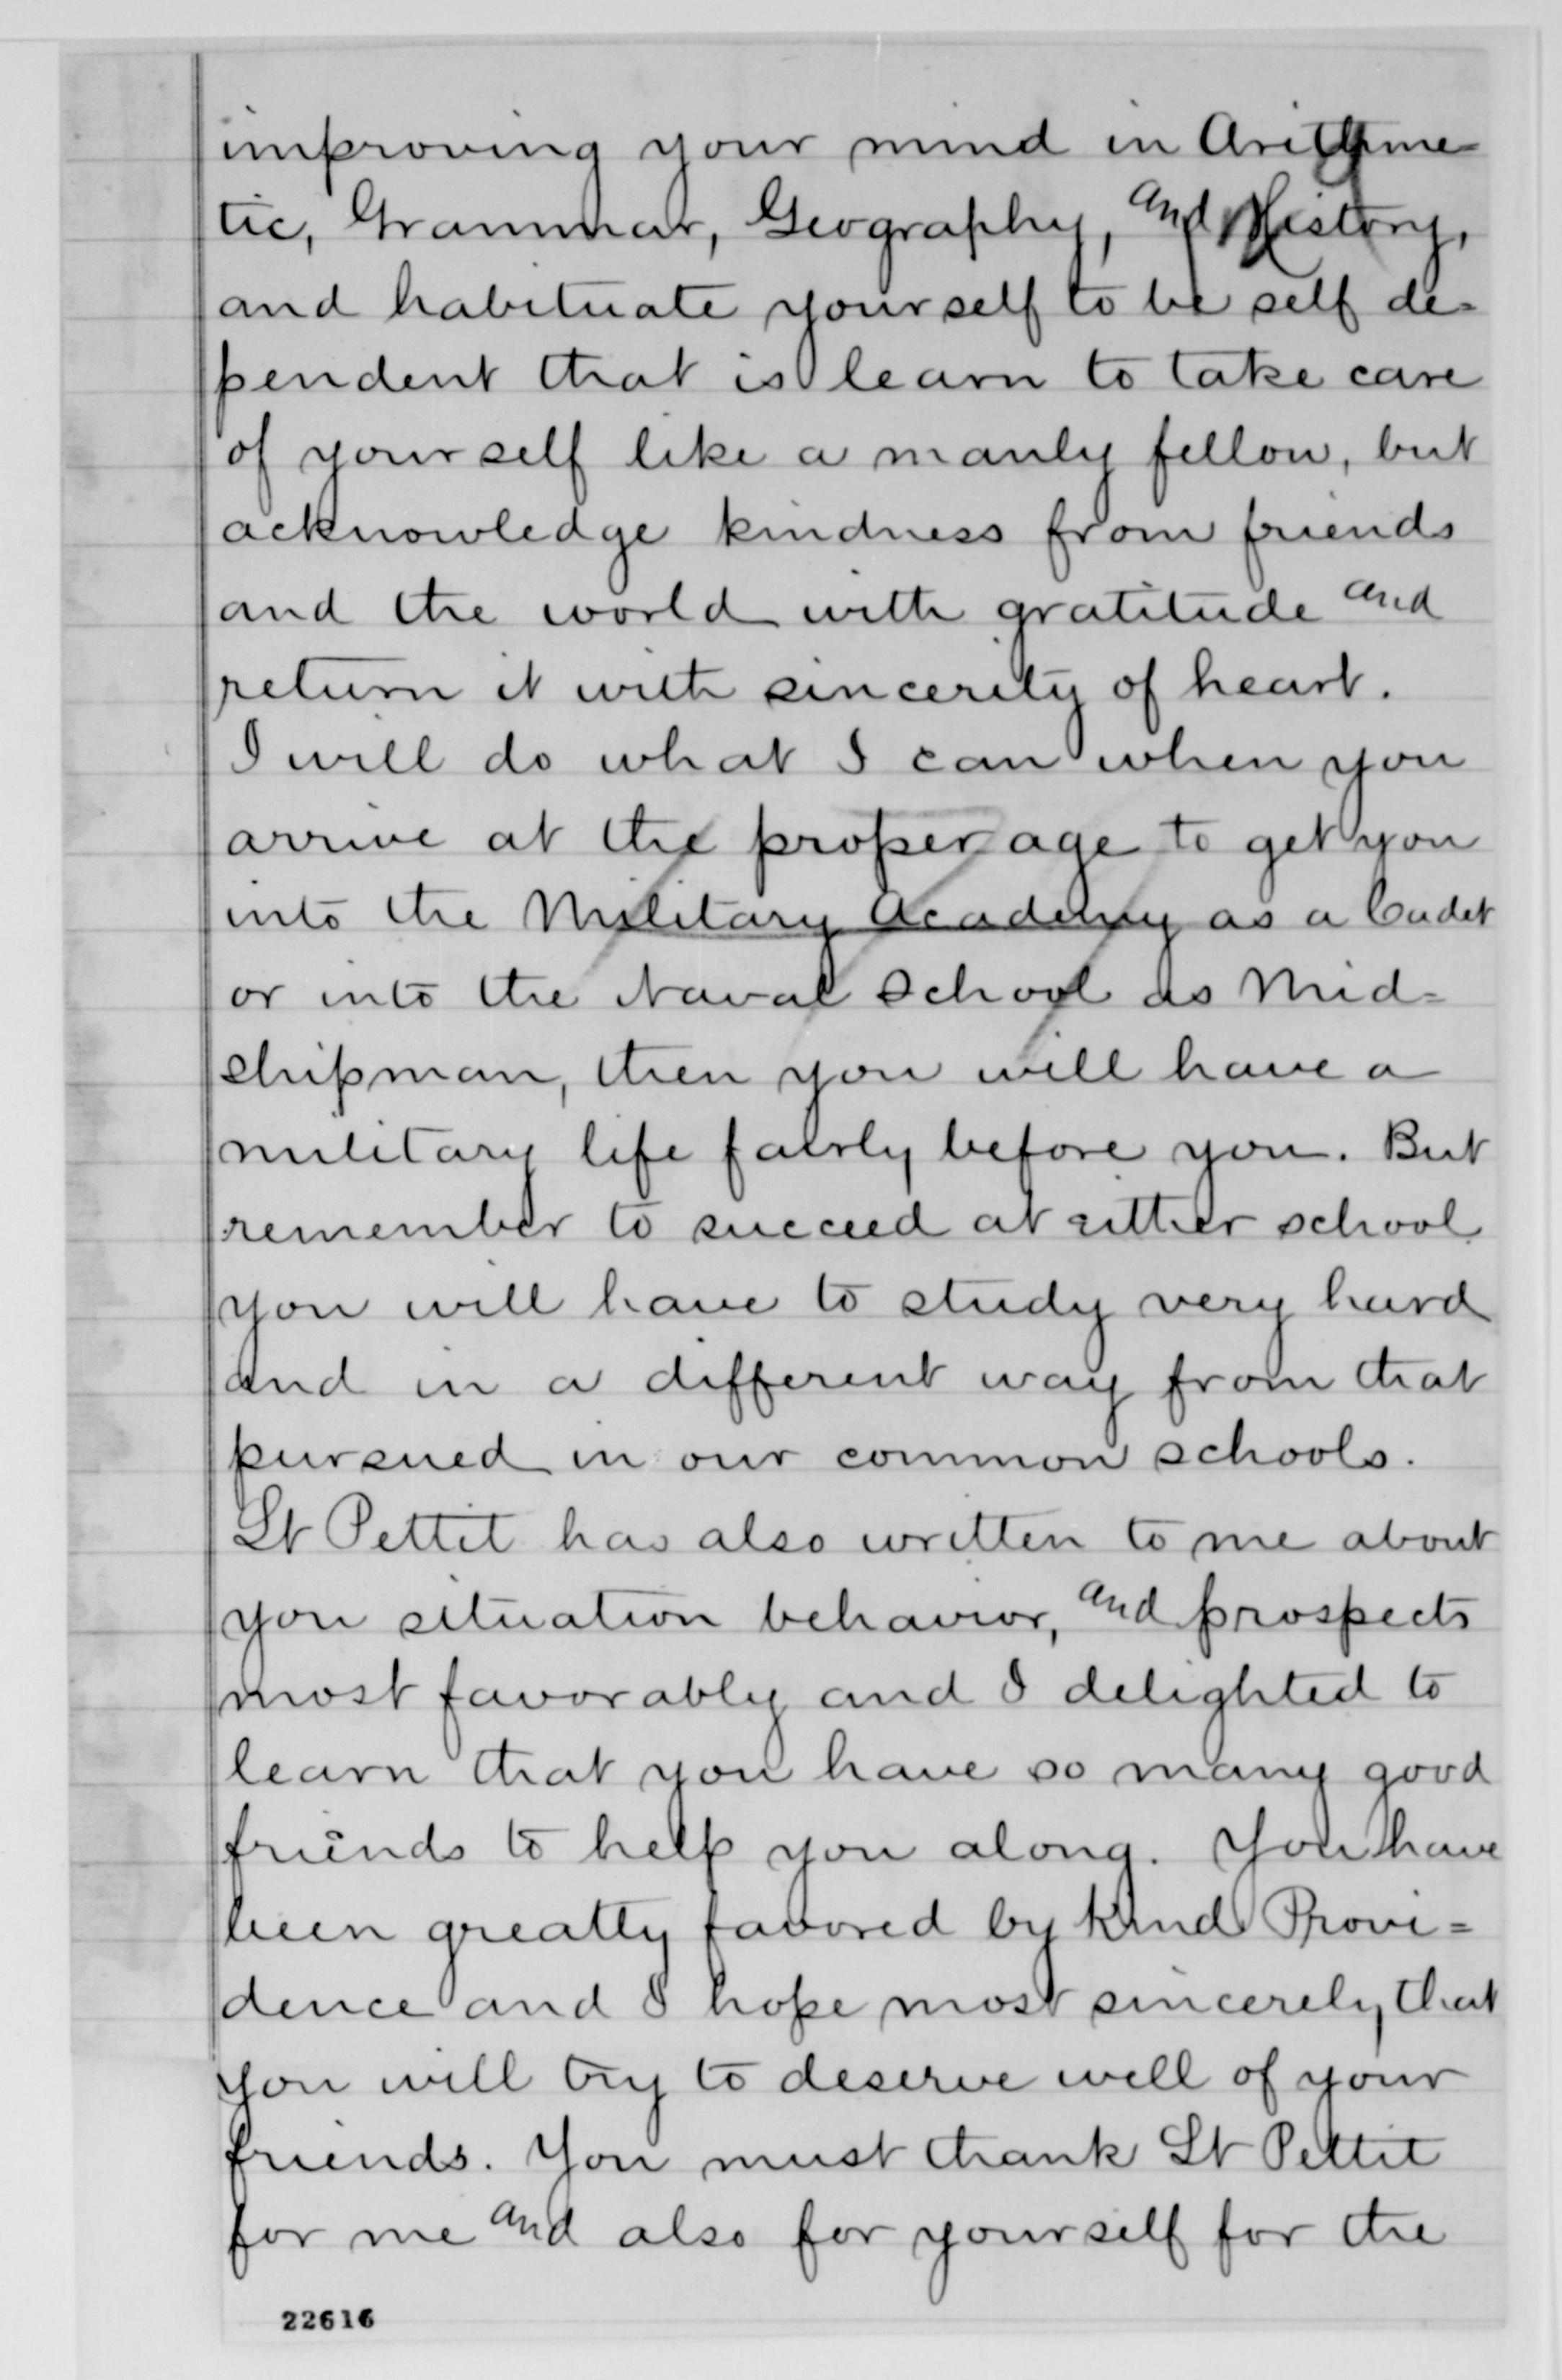 improving your mind in Arithme=
tic, Grammar, Geography, and History,
and habituate yourself to be self de=
pendent that is learn to take care
of yourself like a manly fellow, but
acknowledge kindness from friends
and the world with gratitude and
return it with sincerity of heart.
I will do what I can when you
arrive at the proper age to get you
into the Military Academy as a Cadet
or into the Naval School as Mid=
shipman, then you will have a
military life fairly before you. But
remember to succeed at either school
you will have to study very hard
and in a different way from that
pursued in our common schools.
Lt Pettit has also written to me about
you situation behavior, and prospects
most favorably and I delighted to
learn that you have so many good
friends to help you along. You have
been greatly favored by Kind Provi=
dence and I hope most sincerely that
you will try to deserve well of your
friends. You must thank Lt Pettit
for me and also for yourself for the
22616